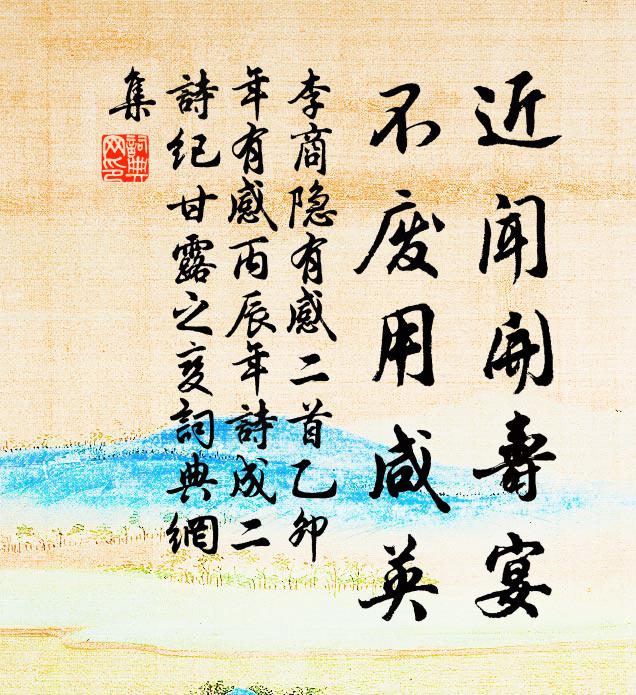 近闻开壽宴
不废用咸英
李商隐有感二首乙卯
年有感丙辰年詩成二
詩纪甘露之变詞典網
集
詞典
网印